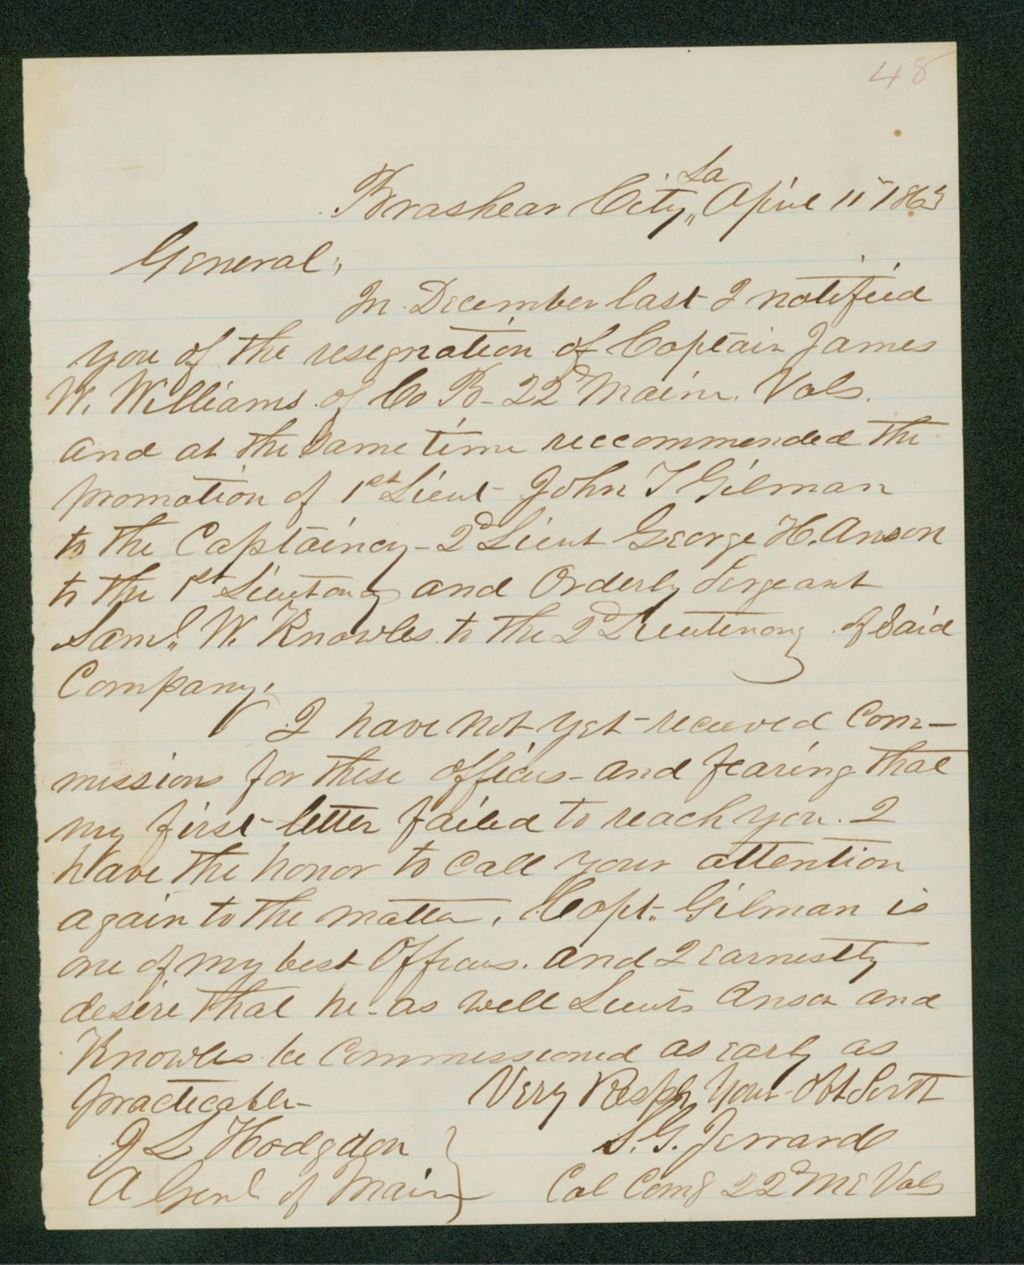 48
Brashear City, La April 11th 1863
General,
In December last I notified
you of the resignation of Captain James
W. Williams of Co B - 22d Maine Vols.
and at the same time reccommended the
promotion of 1st Lieut John T Gilman
to the Captaincy - 2d Lieut George H. Anson
to the 1st Lieutenancy and Orderly Sergeant
Saml. W. Knowles to the 2d Lieutenancy of said
Company.
I have not yet received Com-
missions for these officers - and fearing that
my first letter failed to reach you. I
have the honor to call your attention
again to the matter. Capt. Gilman is
one of my best Officers. and I earnestly
desire that he - as well Lieuts Anson and
Knowles be Commissioned as early as
practicable -
Very Respy Your Obt Servt
S. G. Jerrard
Col Comg 22d Me Vols
J L Hodgdon
A Genl of Maine